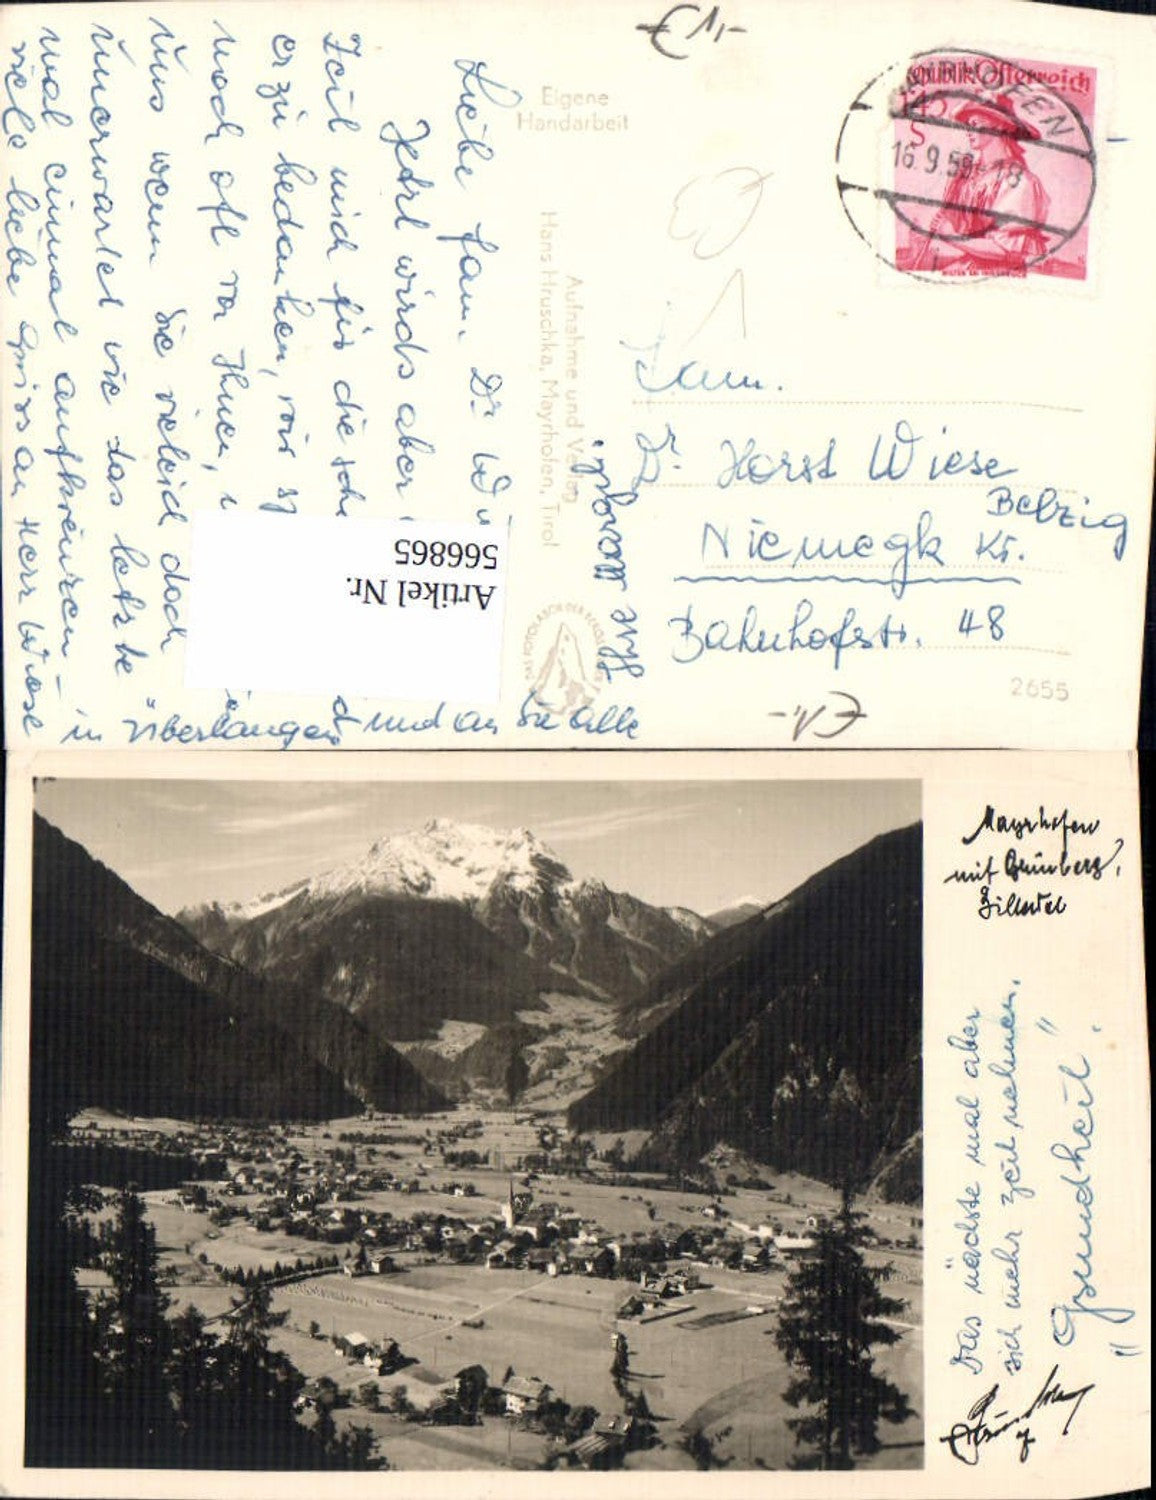 € 1,-
Eigene
Handarbeit
Republik Österreich
1.45
S
WILTEN BEI INNSBRUCK
MAYRHOFEN
16.9.59-18
Aufnahme und Verlag
Hans Hruschka, Mayrhofen, Tirol
DAS FOTOLABOR DER BERGSTEIGER
2655
Fam.
Dr. Horst Wiese
Niemegk Kr. Belzig
Bahnhofstr. 48
€ 1,-
Liebe Fam. Dr. Wi
Jetzt wirds aber
Zeit mich für die schö
er zu bedanken, wir sp
noch oft von Ihnen,
Uns wenn Sie vieleid doch
Unerwartet wie das letzte
mal einmal aufkreuzen in
viele liebe Grüss an Herr Wiese
in Überlangen und an Sie alle
Ihre
Artikel Nr.
566865
Mayrhofen
mit Grünberg,
Zillertal
Das nächste mal aber
sich mehr Zeit nehmen.
"Gsundheit".